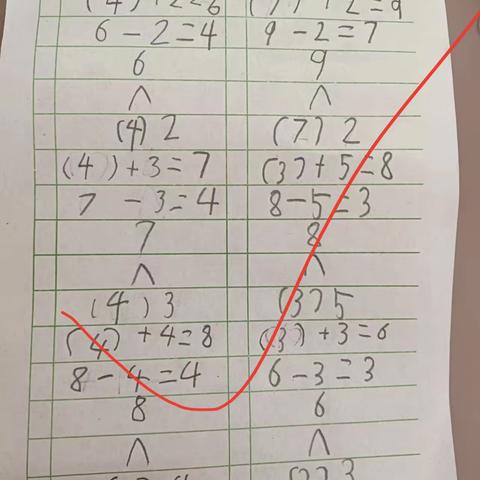 (4)+2=6 (7)+2=9
6-2=4 9-2=7
6 9
∧ ∧
(4) 2 (7) 2
(4)+3=7 (3)+5=8
7-3=4 8-5=3
7 8
∧ ∧
(4) 3 (3) 5
(4)+4=8 (3)+3=6
8-4=4 6-3=3
8 6
∧ ∧
3